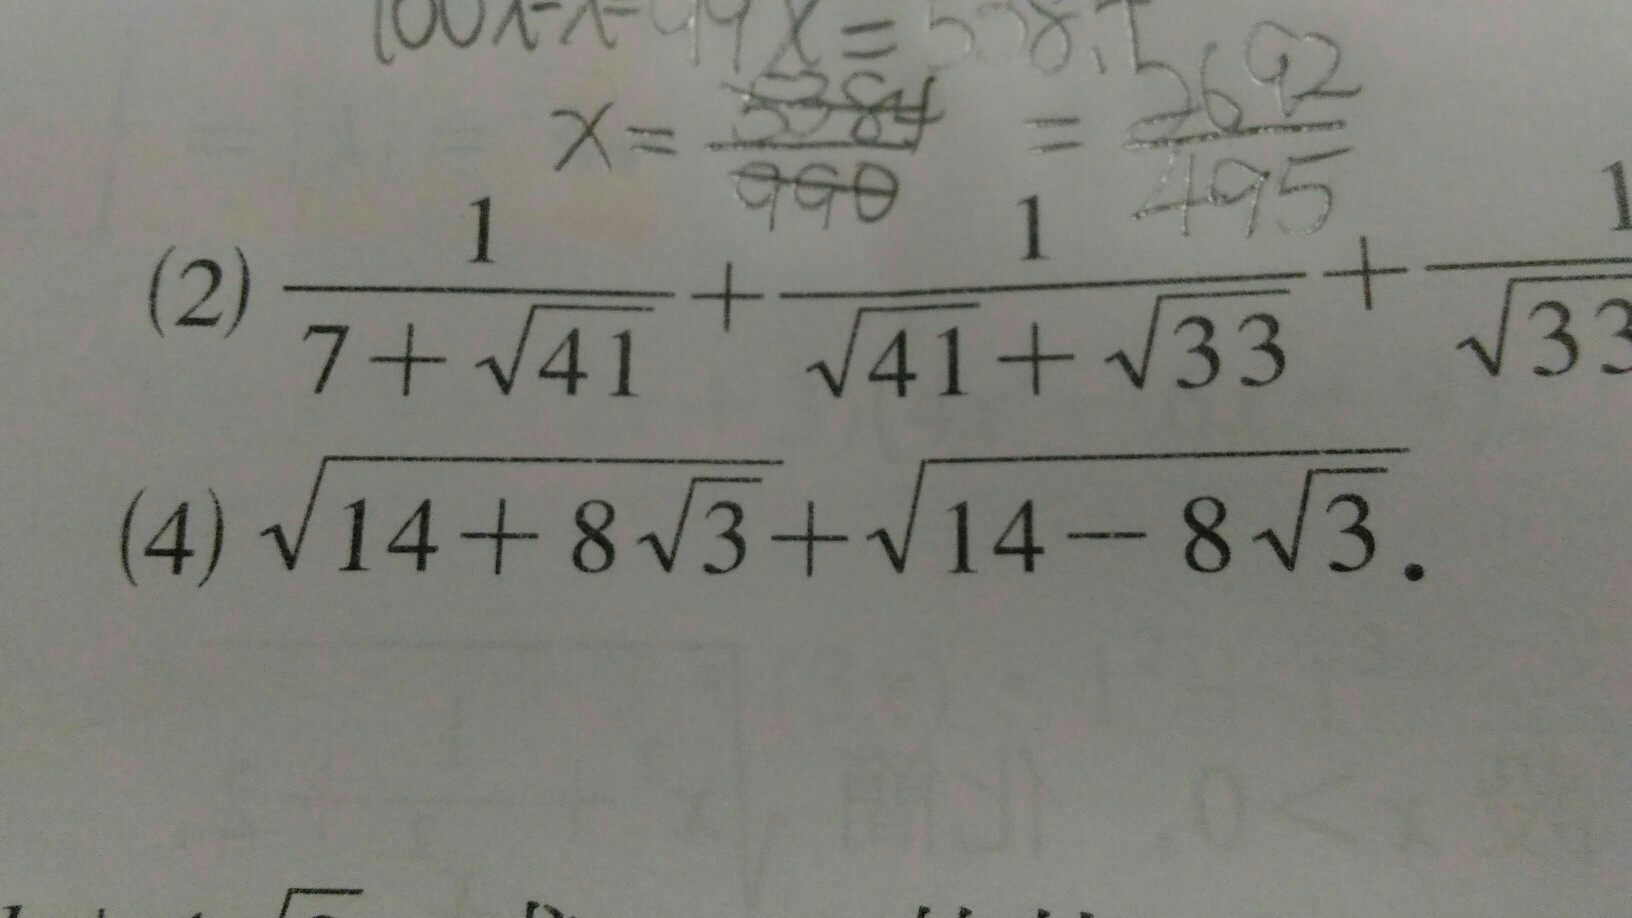 100x-x=99x=538.4
x = 5384/990 = 2692/495
(2) 1/(7+√41) + 1/(√41+√33) + 1/√33
(4) √(14+8√3) + √(14-8√3).